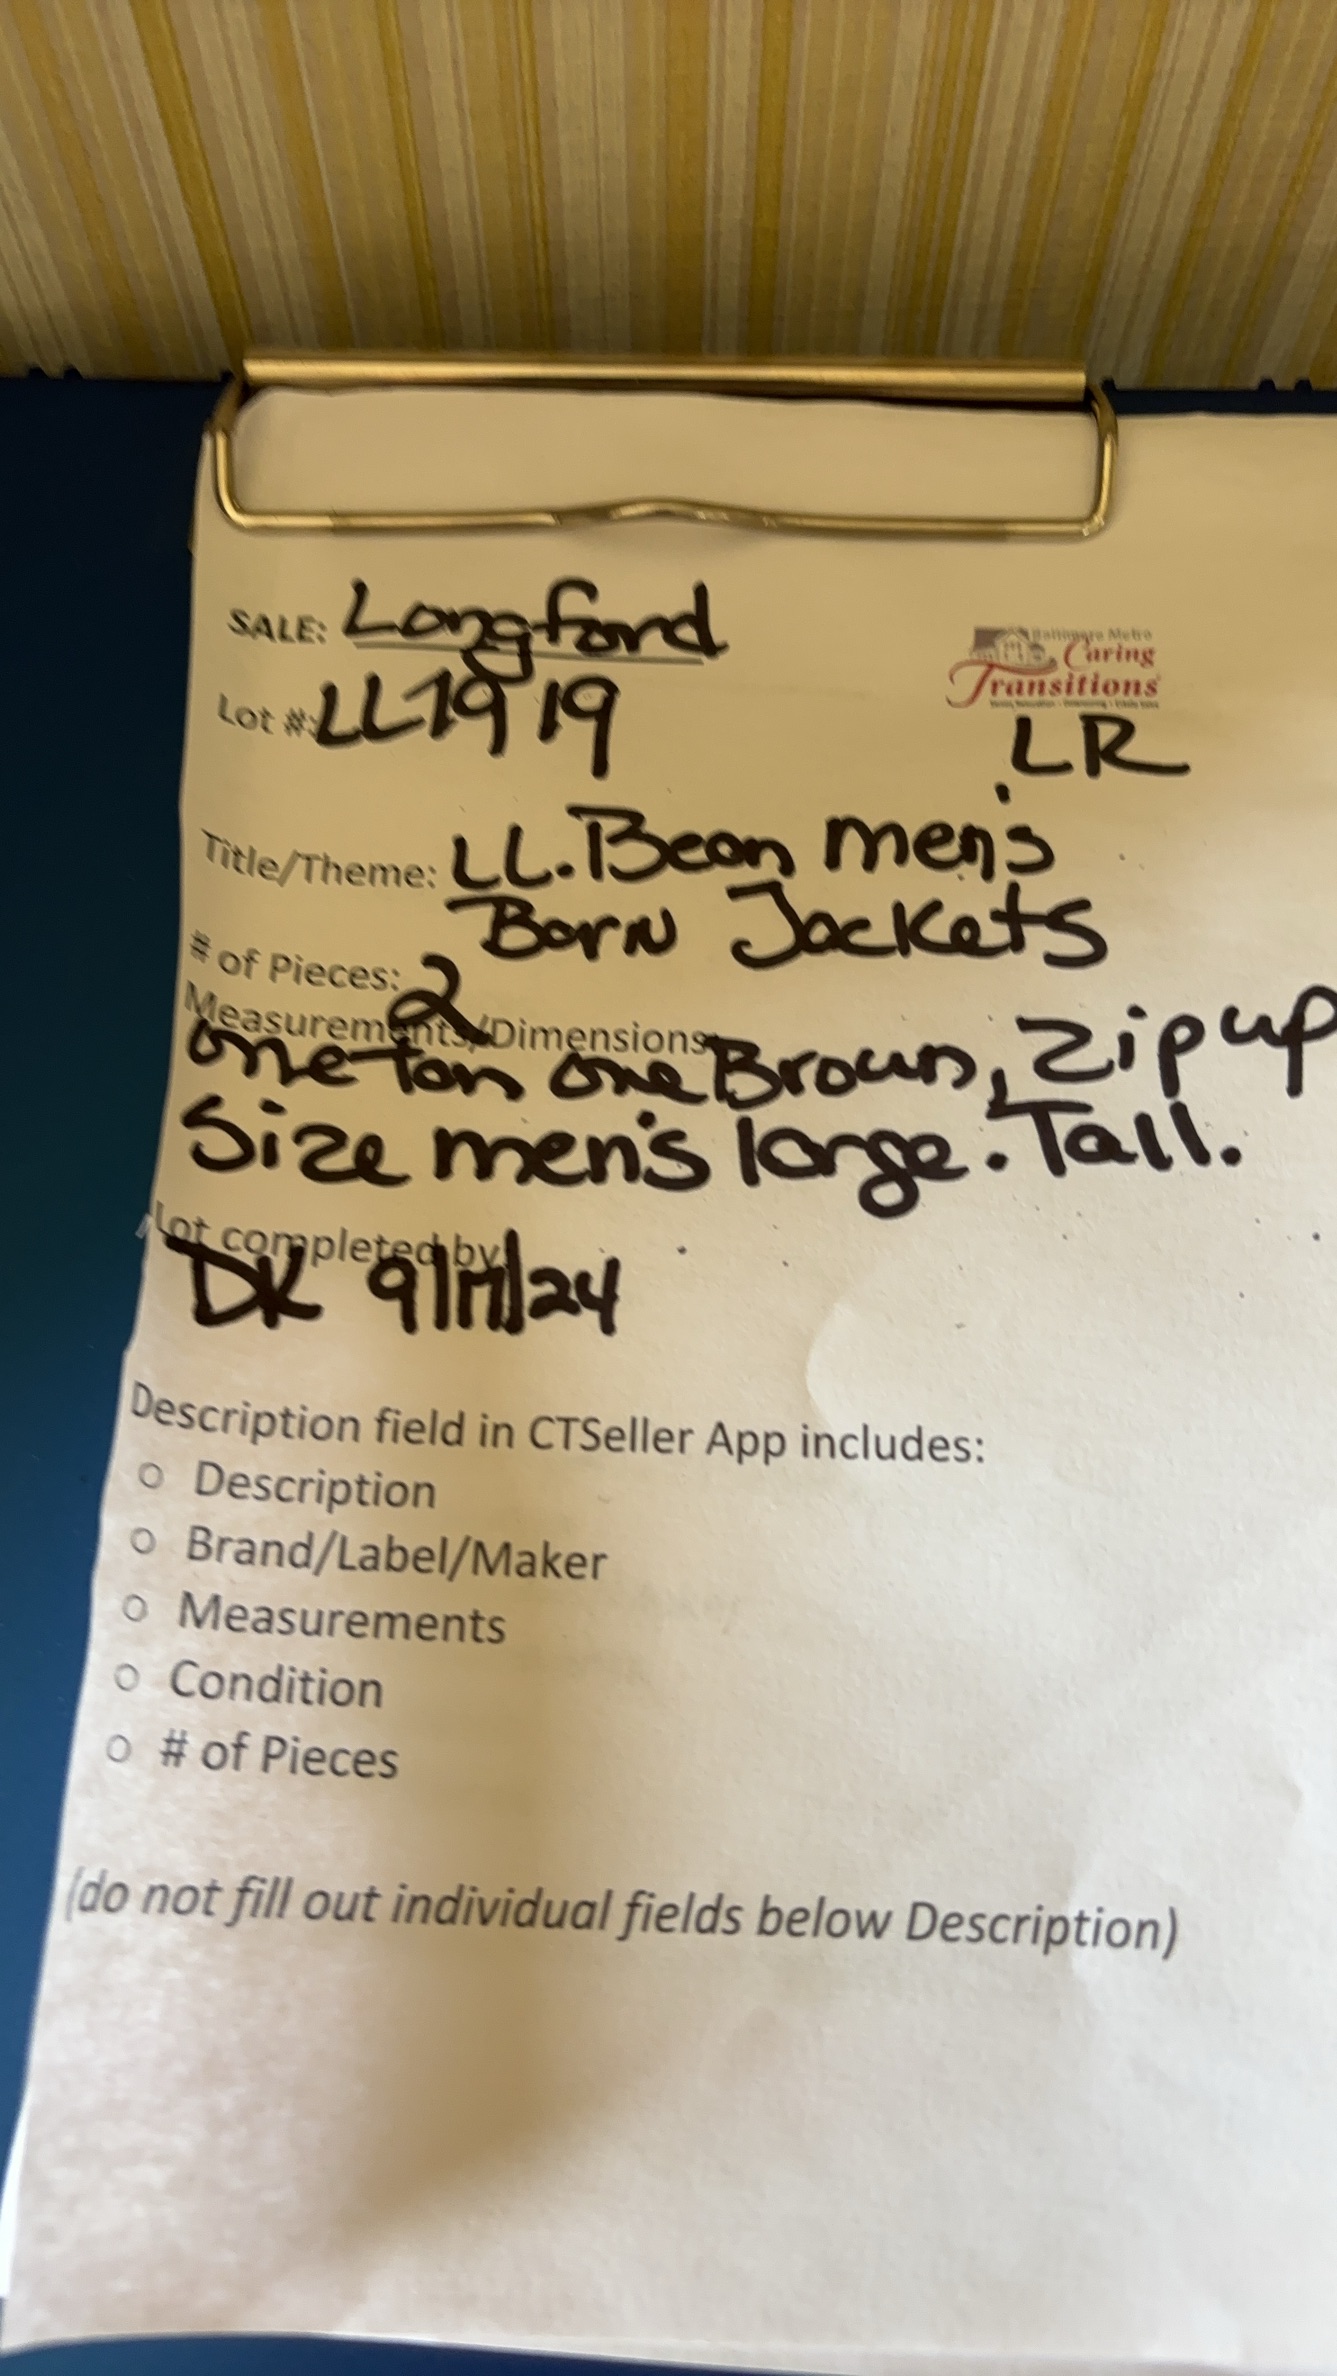 SALE: Longford
Baltimore Metro
Caring
Transitions
Lot #: LL1919
LR
Title/Theme: LL.Bean men's
Barn Jackets
# of Pieces: 2
Measurements/Dimensions:
one tan one Brown, Zip up
Size men's large. Tall.
Lot completed by:
DK 9/17/24
Description field in CTSeller App includes:
○ Description
○ Brand/Label/Maker
○ Measurements
○ Condition
○ # of Pieces
(do not fill out individual fields below Description)